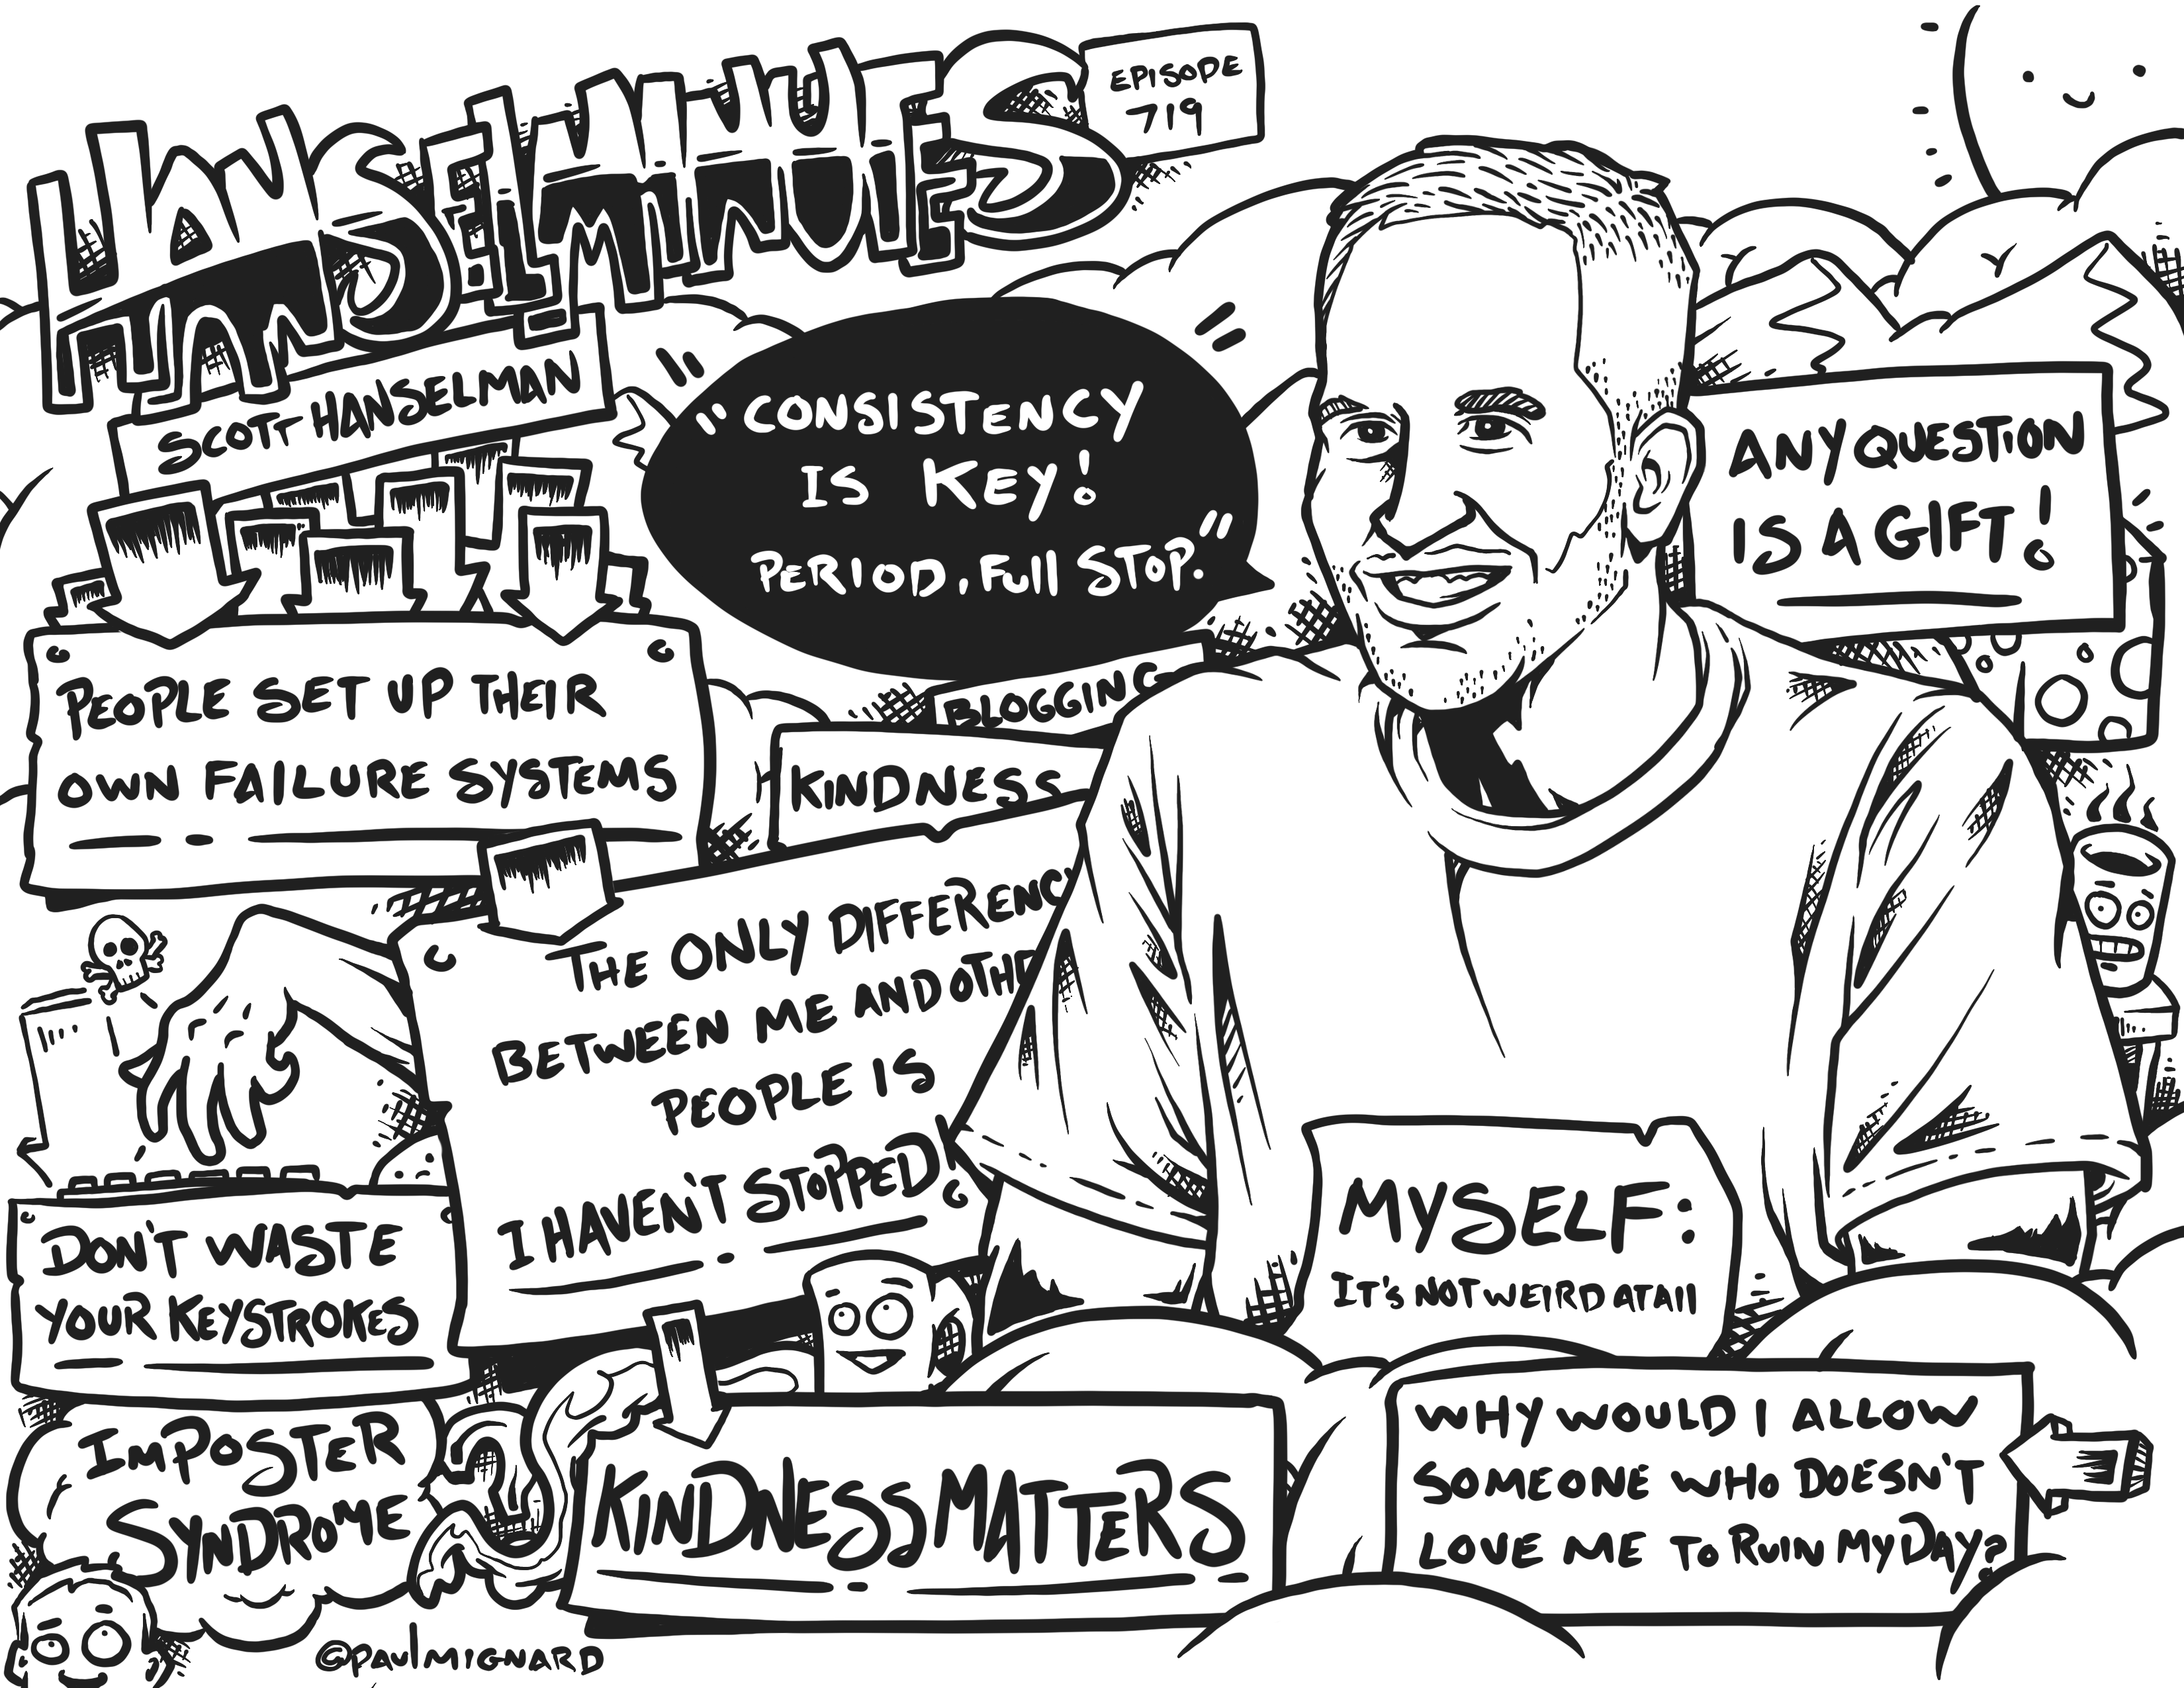 HANSELMINUTES
EPISODE
719
SCOTT HANSELMAN
"CONSISTENCY
IS KEY!
PERIOD, FUll STOP."
ANY QUESTION
IS A GIFT!
PEOPLE SET UP THEIR
OWN FAILURE SYSTEMS
BLOGGING
KINDNESS
THE ONLY DIFFERENC
BETWEEN ME AND OTHE
PEOPLE IS
I HAVEN'T STOPPED
DON'T WASTE
YOUR KEYSTROKES
MYSELF:
IT'S NOT WEIRD AT All
IMPOSTER
SYNDROME
KINDNESS MATTERS
WHY WOULD I ALLOW
SOMEONE WHO DOESN'T
LOVE ME TO RUIN MY DAY?
@PAUlMIGNARD